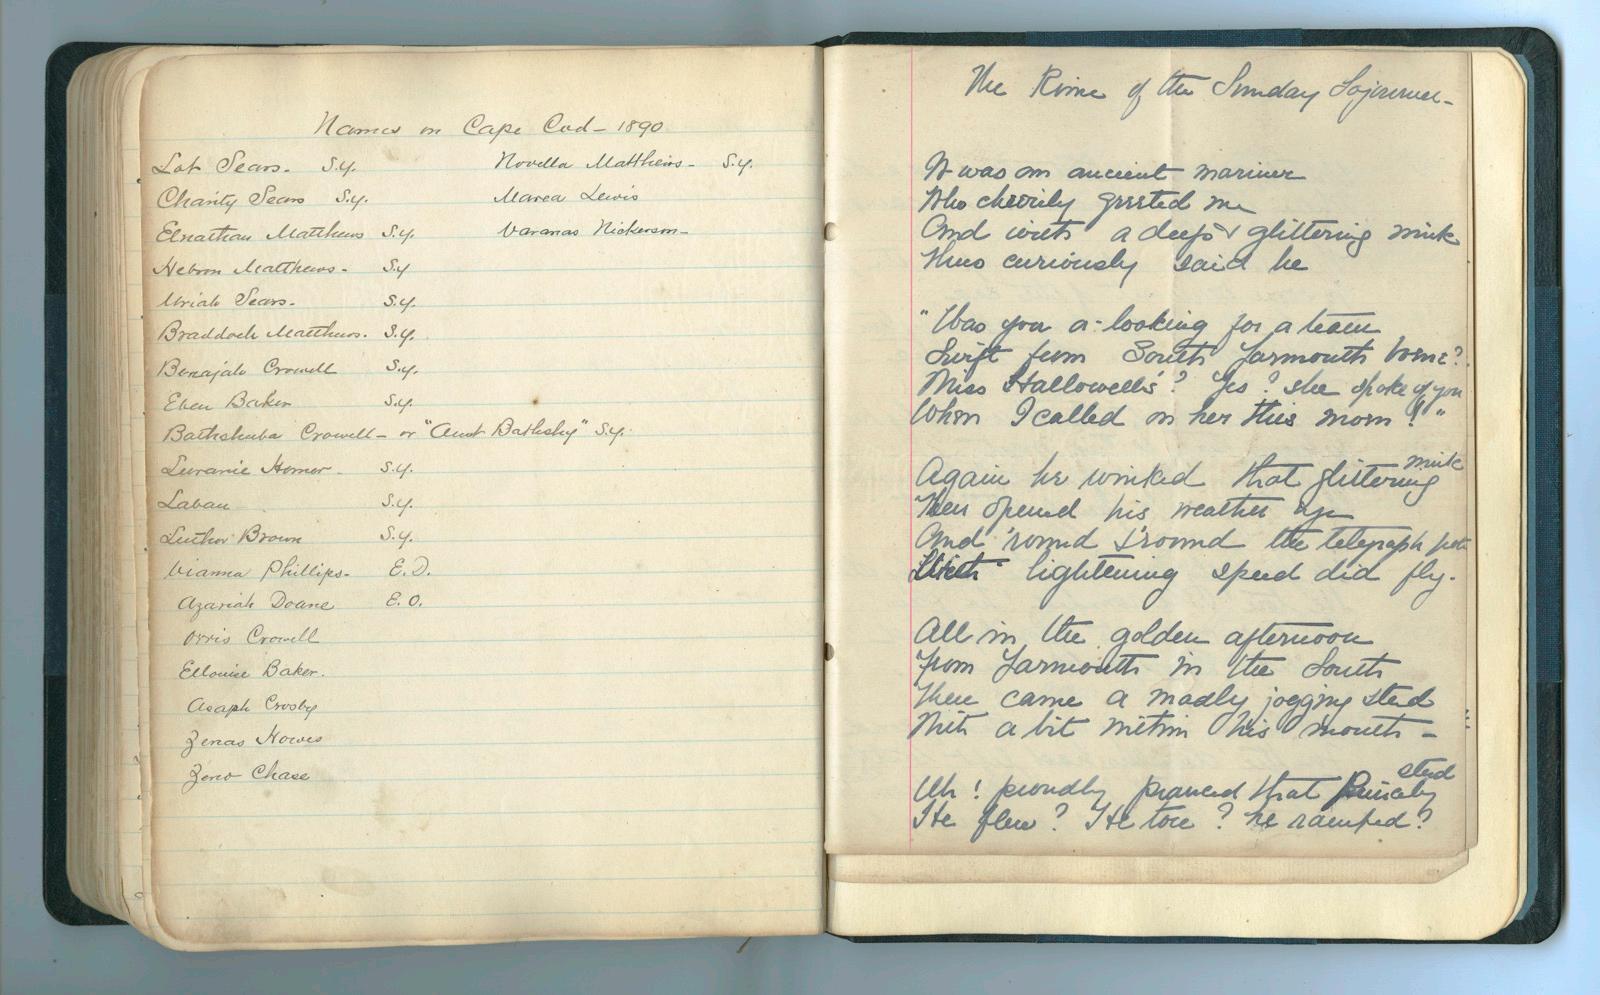 Names on Cape Cod - 1890
Lot Sears. S.Y.
Charity Sears S.Y.
Elnathan Matthews S.Y.
Hebron Matthews. S.Y
Uriah Sears. S.Y.
Braddock Matthews. S.Y.
Benajah Crowell S.Y.
Eben Baker S.Y.
Bathsheba Crowell - or "Aunt Bathshy" S.Y.
Luranie Homer S.Y.
Laban S.Y.
Luther Brown S.Y.
Vianna Phillips. E.D.
Azariah Doane E.O.
Orris Crowell
Ellouise Baker.
Asaph Crosby
Zenas Howes
Zeno Chase
Novella Matthews - S.Y.
Marea Lewis
Varanas Nickerson -
The Rime of the Sunday Sojourner -
It was an ancient mariner
Who cheerily greeted me
And with a deep & glittering wink
Thus curiously said he
"Was you a-looking for a team
Swift from South Yarmouth borne?
Miss Hallowells'? Yes? she spoke of you
When I called on her this morn!"
Again he winked that glittering wink
Then opened his weather eye
And 'round & 'round the telegraph pole
With lightening speed did fly.
All in the golden afternoon
From Yarmouth in the South
There came a madly jogging steed
With a bit within his mouth -
Uh! proudly pranced that Princely steed
He flew? He tore? he ramped?